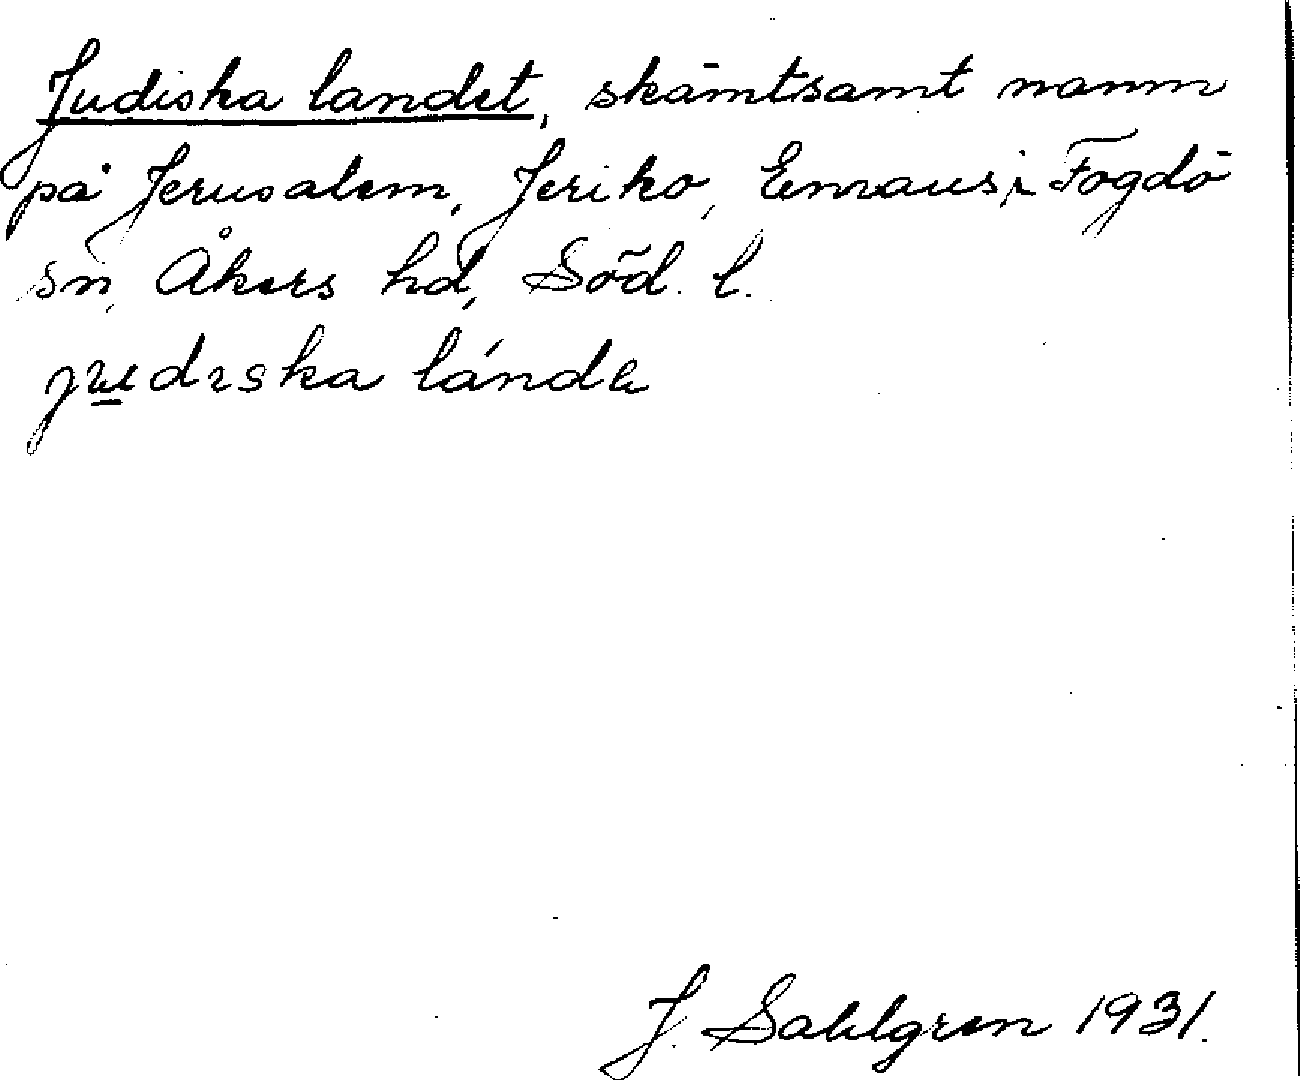 Judiska landet, skämtsamt namn
på Jerusalem, Jeriko, Emaus i Fogdö
sn, Åkers hd, Söd. l.
judiska lánde
J. Sahlgren 1931.